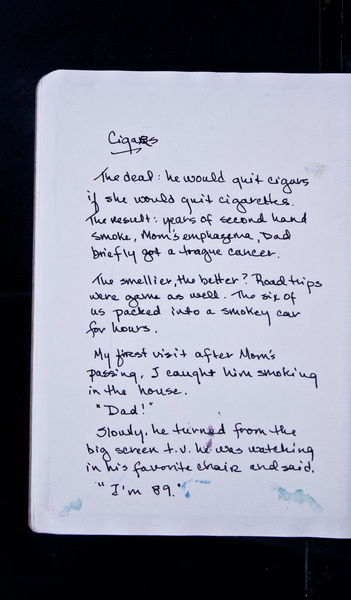 Cigars
The deal: he would quit cigars
if she would quit cigarettes.
The result: years of second hand
smoke, Mom's emphazema, Dad
briefly got a tongue cancer.
The smellier, the better? Road trips
were game as well. The six of
us packed into a smokey car
for hours.
My first visit after Mom's
passing, I caught him smoking
in the house.
"Dad!"
Slowly, he turned from the
big screen t.v. he was watching
in his favorite chair and said.
"I'm 89."